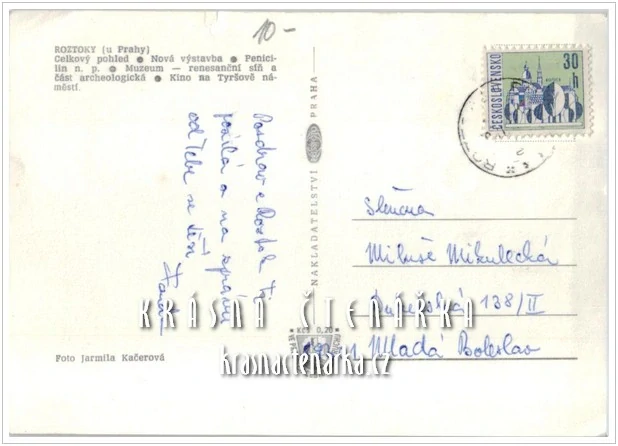 10-
ROZTOKY (u Prahy)
Celkový pohled ● Nová výstavba ● Penici-
lin n. p. ● Muzeum — renesanční síň a
část archeologická ● Kino na Tyršově ná-
městí.
Pozdrav z Roztok Ti
posílá a na zprávu
od Tebe se těší
NAKLADATELSTVÍ PRAHA
ČESKOSLOVENSKO
30
h
Slečna
Miluše Mikulecká
138/II
Mladá Boleslav
Kčs 0,20
KRÁSNÁ ČTENÁŘKA
krasnactenarka.cz
Foto Jarmila Kačerová